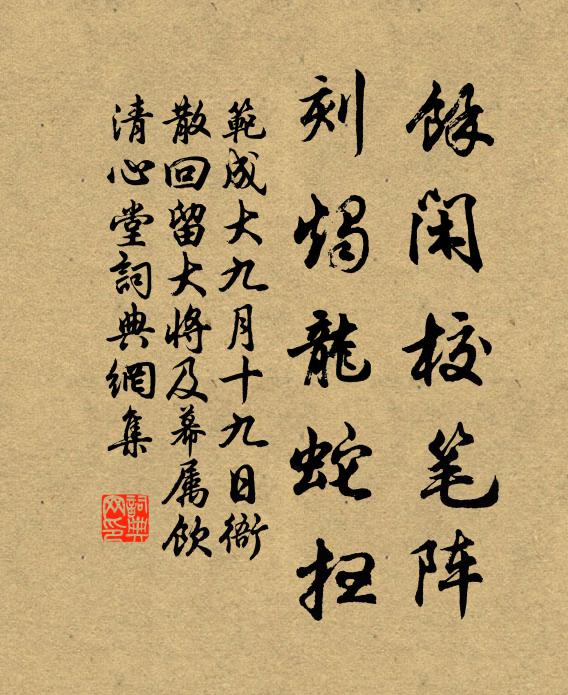 餘闲校笔阵
刻烛龍蛇扫
範成大九月十九日衙
散回留大将及幕属饮
清心堂詞典網集
詞典
网印